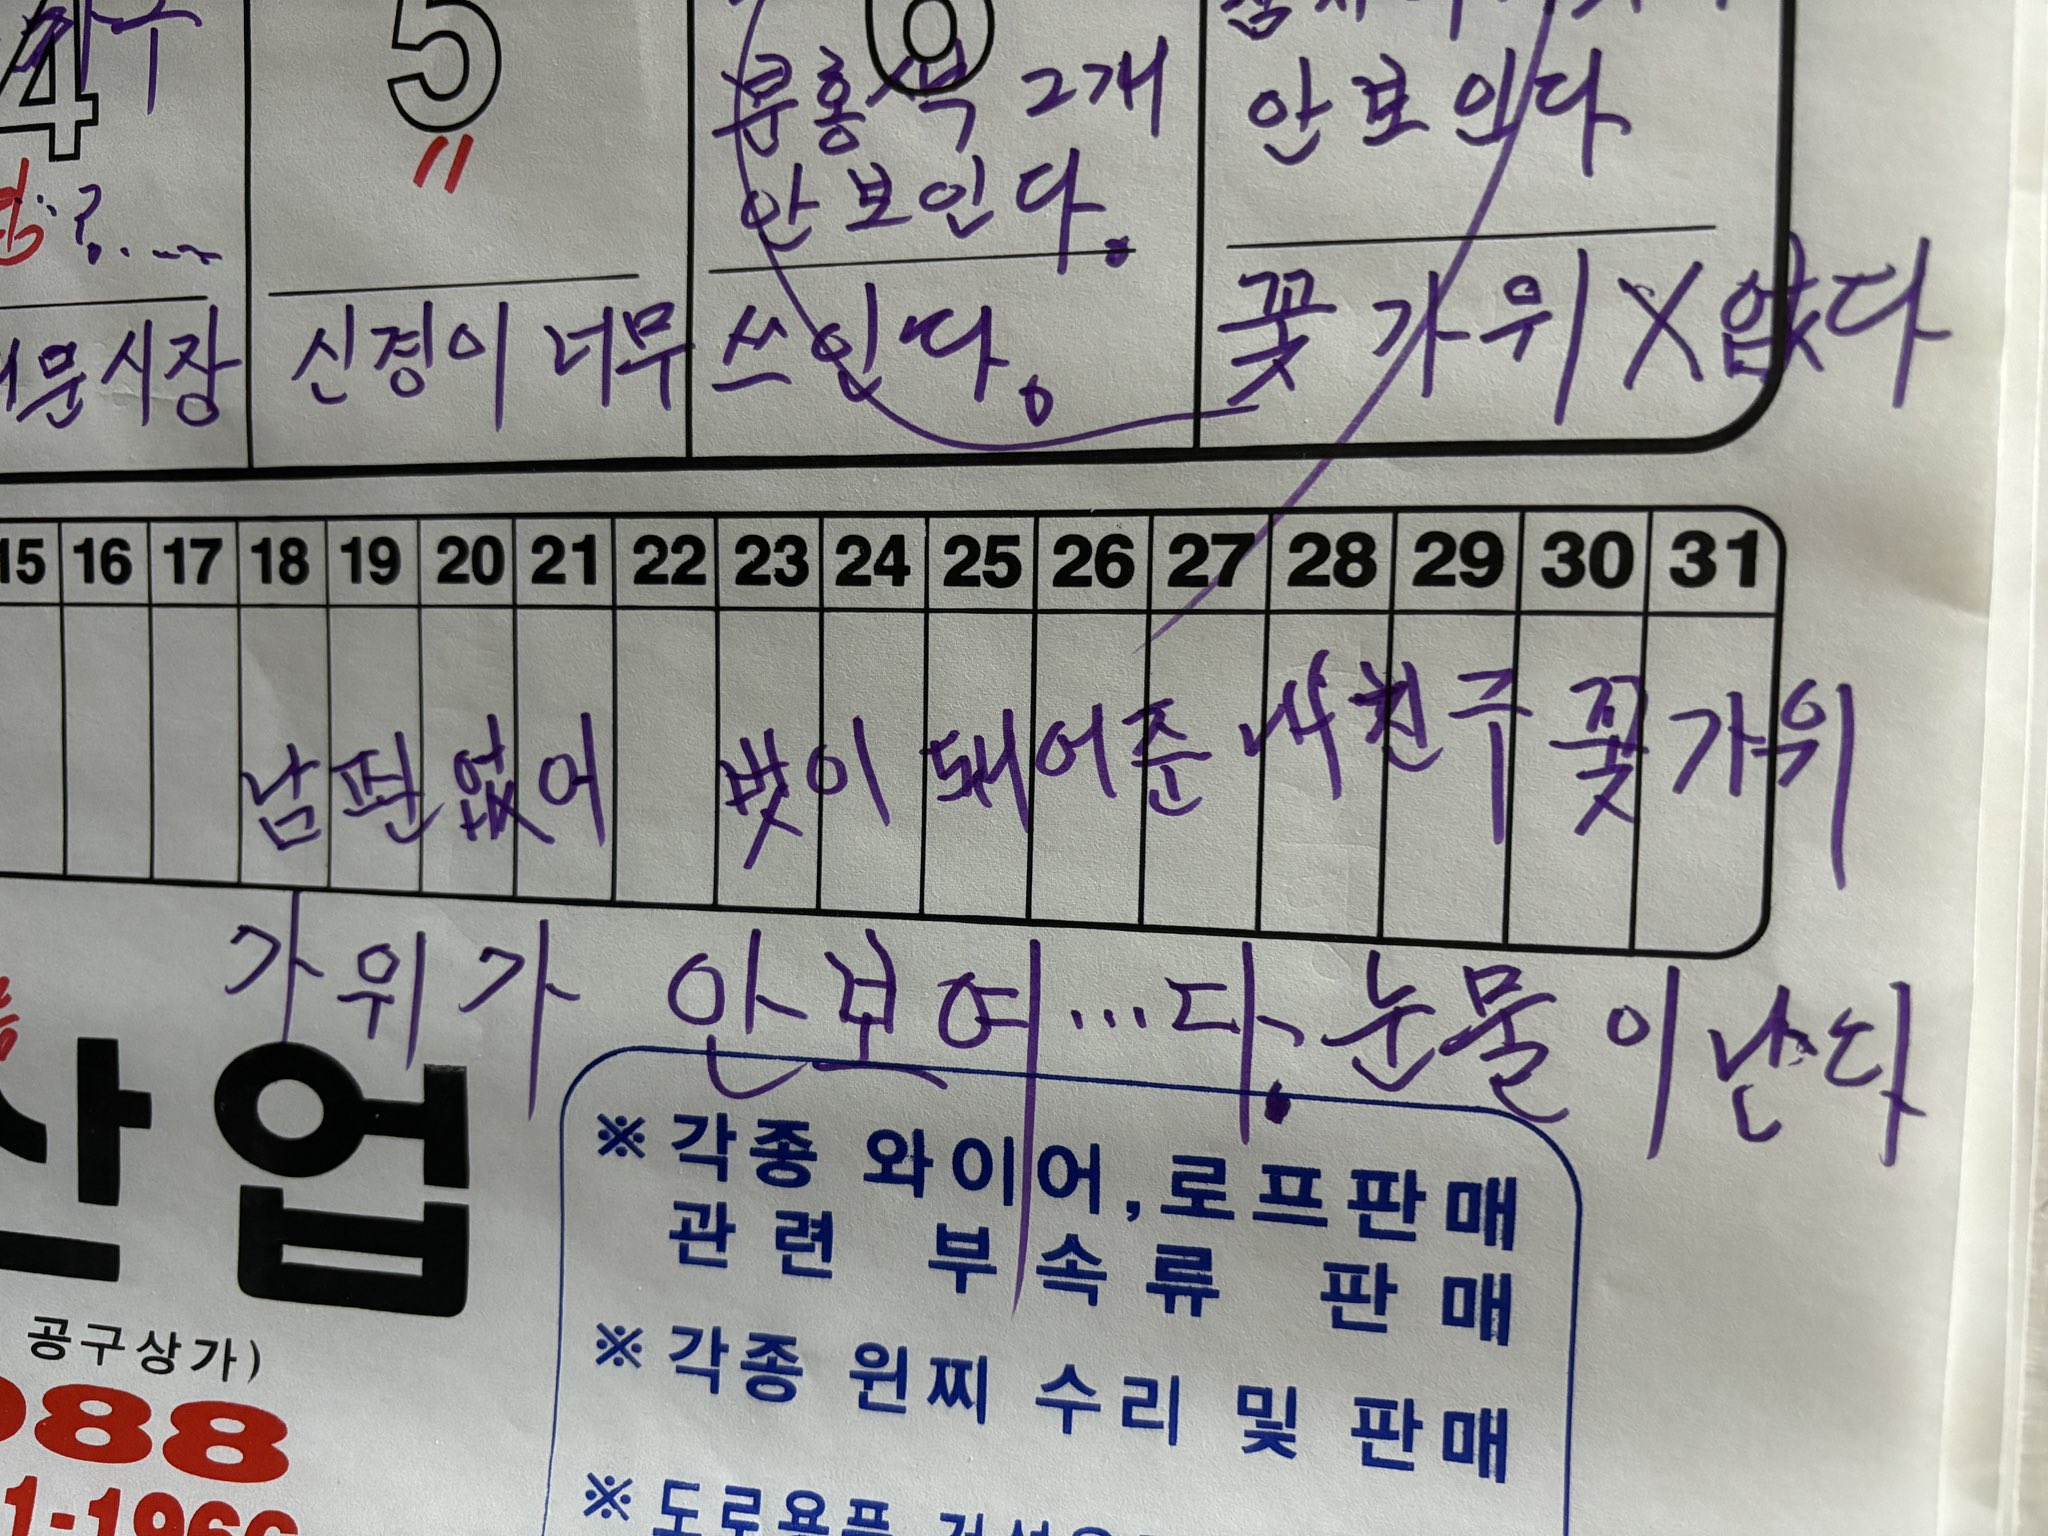 4 5 6
분홍색 2개
안보인다.
안보인다
문시장 신경이 너무 쓰인다. 꽃가위 X 없다
15 16 17 18 19 20 21 22 23 24 25 26 27 28 29 30 31
남편없어 벗이 돼어준 내친구 꽃가위
가위가 안보여...다. 눈물이 난다
산업
공구상가)
988
1-1966
※ 각종 와이어,로프판매
관련 부속류 판매
※ 각종 윈찌 수리 및 판매
※ 도로용품